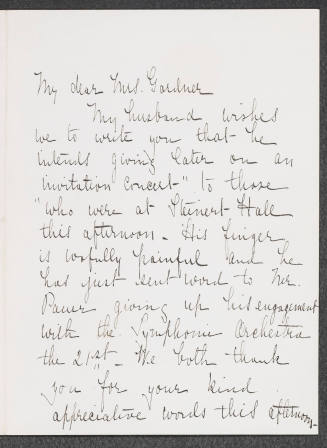 My dear Mrs. Gardner
My husband wishes
me to write you that he
intends giving later on an
invitation concert" to those
"who were at Steinert Hall
this afternoon - His finger
is woefully painful and he
has just sent word to Mr.
Paur giving up his engagement
with the Symphonic Orchestra
the 21st - We both thank
you for your kind
appreciative words this afternoon -